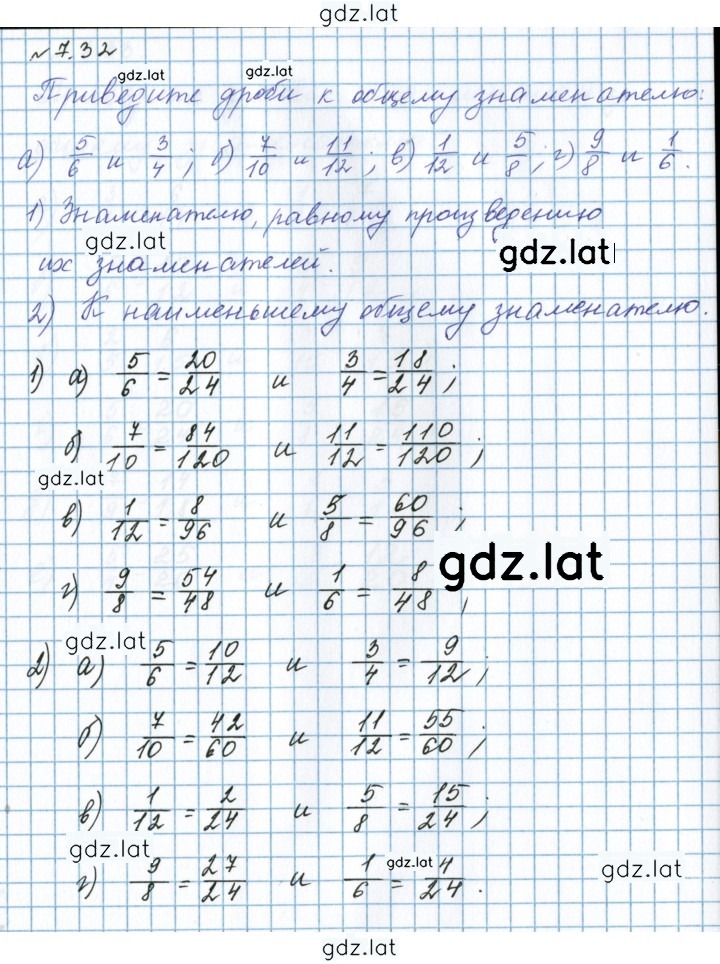 gdz.lat
№ 7.32
gdz.lat gdz.lat
Приведите дроби к общему знаменателю:
а) 5/6 и 3/4; б) 7/10 и 11/12; в) 1/12 и 5/8; г) 9/8 и 1/6.
1) Знаменателю, равному произведению
gdz.lat gdz.lat
их знаменателей.
2) К наименьшему общему знаменателю.
1) а) 5/6 = 20/24 и 3/4 = 18/24;
б) 7/10 = 84/120 и 11/12 = 110/120;
gdz.lat
в) 1/12 = 8/96 и 5/8 = 60/96;
gdz.lat
г) 9/8 = 54/48 и 1/6 = 8/48;
gdz.lat
2) а) 5/6 = 10/12 и 3/4 = 9/12;
б) 7/10 = 42/60 и 11/12 = 55/60;
в) 1/12 = 2/24 и 5/8 = 15/24;
gdz.lat gdz.lat gdz.lat
г) 9/8 = 27/24 и 1/6 = 4/24.
gdz.lat